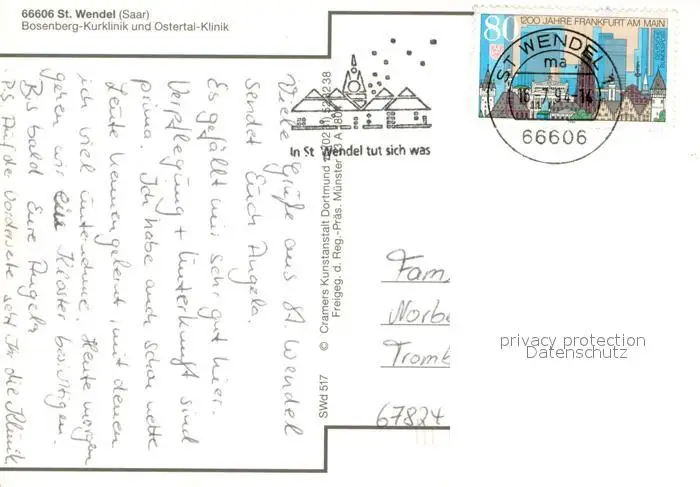 66606 St. Wendel (Saar)
Bosenberg-Kurklinik und Ostertal-Klinik
Viele Grüße aus St. Wendel
sendet Euch Angela.
Es gefällt mir sehr gut hier.
Verpflegung + Unterkunft sind
prima. Ich habe auch schon nette
Leute kennengelernt, mit denen
ich viel unternehme. Heute morgen
gehen wir ein Kloster besichtigen.
Bis bald Eure Angela
P.S. Auf der Vorderseite seht Ihr die Klinik
SWd 517 © Cramers Kunstanstalt Dortmund
Freigeg. d. Reg.-Präs. Münster
In St. Wendel tut sich was
80 1200 JAHRE FRANKFURT AM MAIN
ST WENDEL 1
ma
66606
Fam.
Norbe
Tromb
67824
privacy protection
Datenschutz